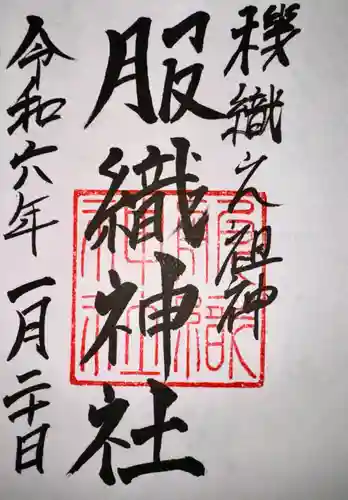 機織乃祖神
服織神社
令和六年一月二十日